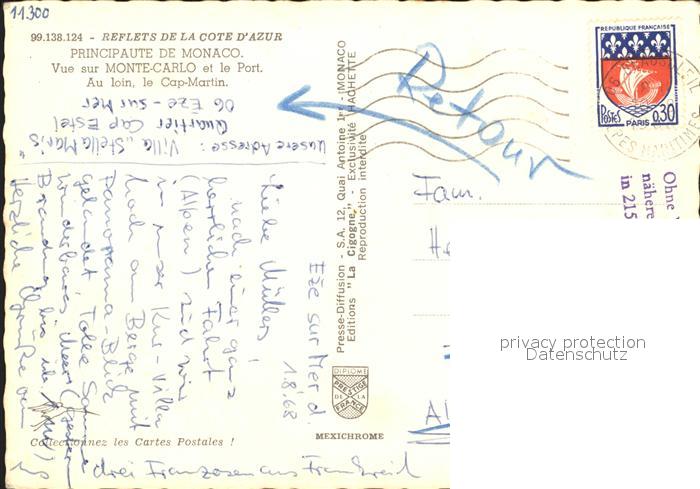 11.300
99.138.124 - REFLETS DE LA COTE D'AZUR
PRINCIPAUTE DE MONACO.
Vue sur MONTE-CARLO et le Port.
Au loin, le Cap-Martin.
Unsere Adresse: Villa „Stella Maris"
Quartier Cap Estel
06 Eze-sur Mer
Eze sur Mer d.
1.8.68
Liebe Müllers!
nach einer ganz
herrlichen Fahrt
(Alpen) sind wir
in unser Kur-Villa
hoch am Berge mit
Panorama-Blick
gelandet. Tolle
wunderbares Meer (gestern
Brandung bis
Herzliche Grüße von
drei Franzosen aus Frankreich
Collectionnez les Cartes Postales !
Presse-Diffusion - S.A. 12, Quai Antoine 1er - MONACO
Editions "La Cigogne" - Exclusivité HACHETTE
Reproduction interdite
DIPLOME
PRESTIGE
DE LA
FRANCE
MEXICHROME
Retour
REPUBLIQUE FRANÇAISE
POSTES PARIS 0,30
ALPES MARITIMES
Fam.
Ohne
nähere
in 215
privacy protection
Datenschutz